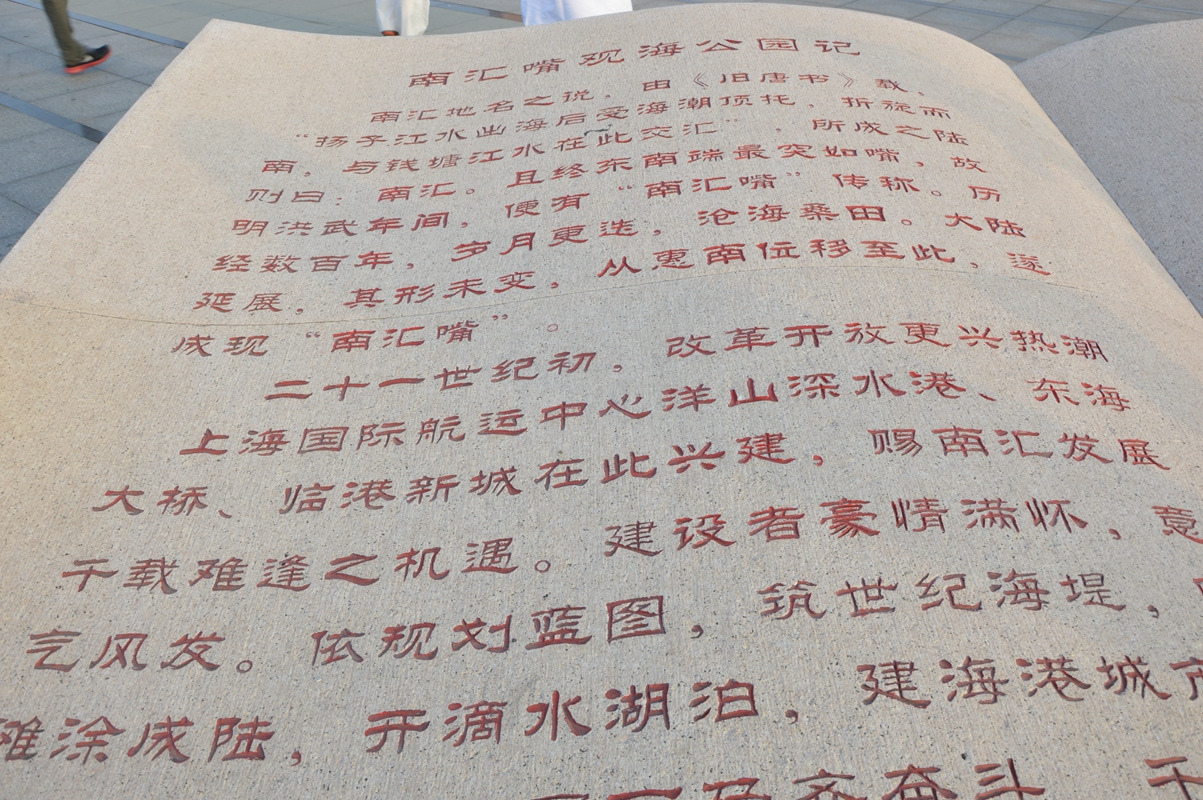 南汇嘴观海公园记
南汇地名之说，由《旧唐书》载，
“扬子江水出海后受海潮顶托，折旋而
南，与钱塘江水在此交汇”，所成之陆
则曰：南汇。且终东南端最突如嘴，故
明洪武年间，便有“南汇嘴”传称。历
经数百年，岁月更迭，沧海桑田。大陆
延展，其形未变，从惠南位移至此，遂
成现“南汇嘴”。
二十一世纪初，改革开放更兴热潮
上海国际航运中心洋山深水港、东海
大桥、临港新城在此兴建，赐南汇发展
千载难逢之机遇。建设者豪情满怀，意
气风发。依规划蓝图，筑世纪海堤，
滩涂成陆，开滴水湖泊，建海港城市
齐奋斗